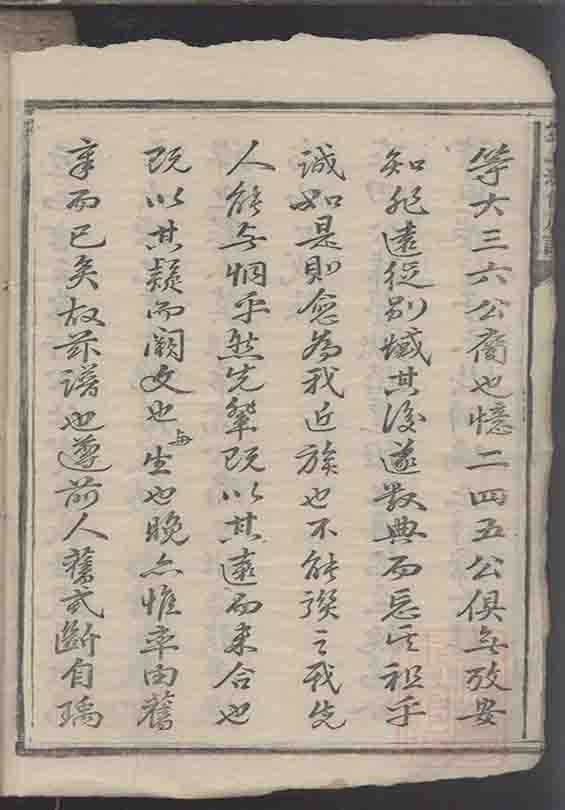 等大三六公裔也憶二四五公俱無攷安
知非遠從別墟其後遂數典而忘其祖乎
誠如是則愈為我近族也不能聯之我先
人能無惘乎然先輩既以其遠而未合也
既以其疑而闕文也每生也晚亦惟率由舊
章而已矣故茲譜也遵前人舊式斷自瑀